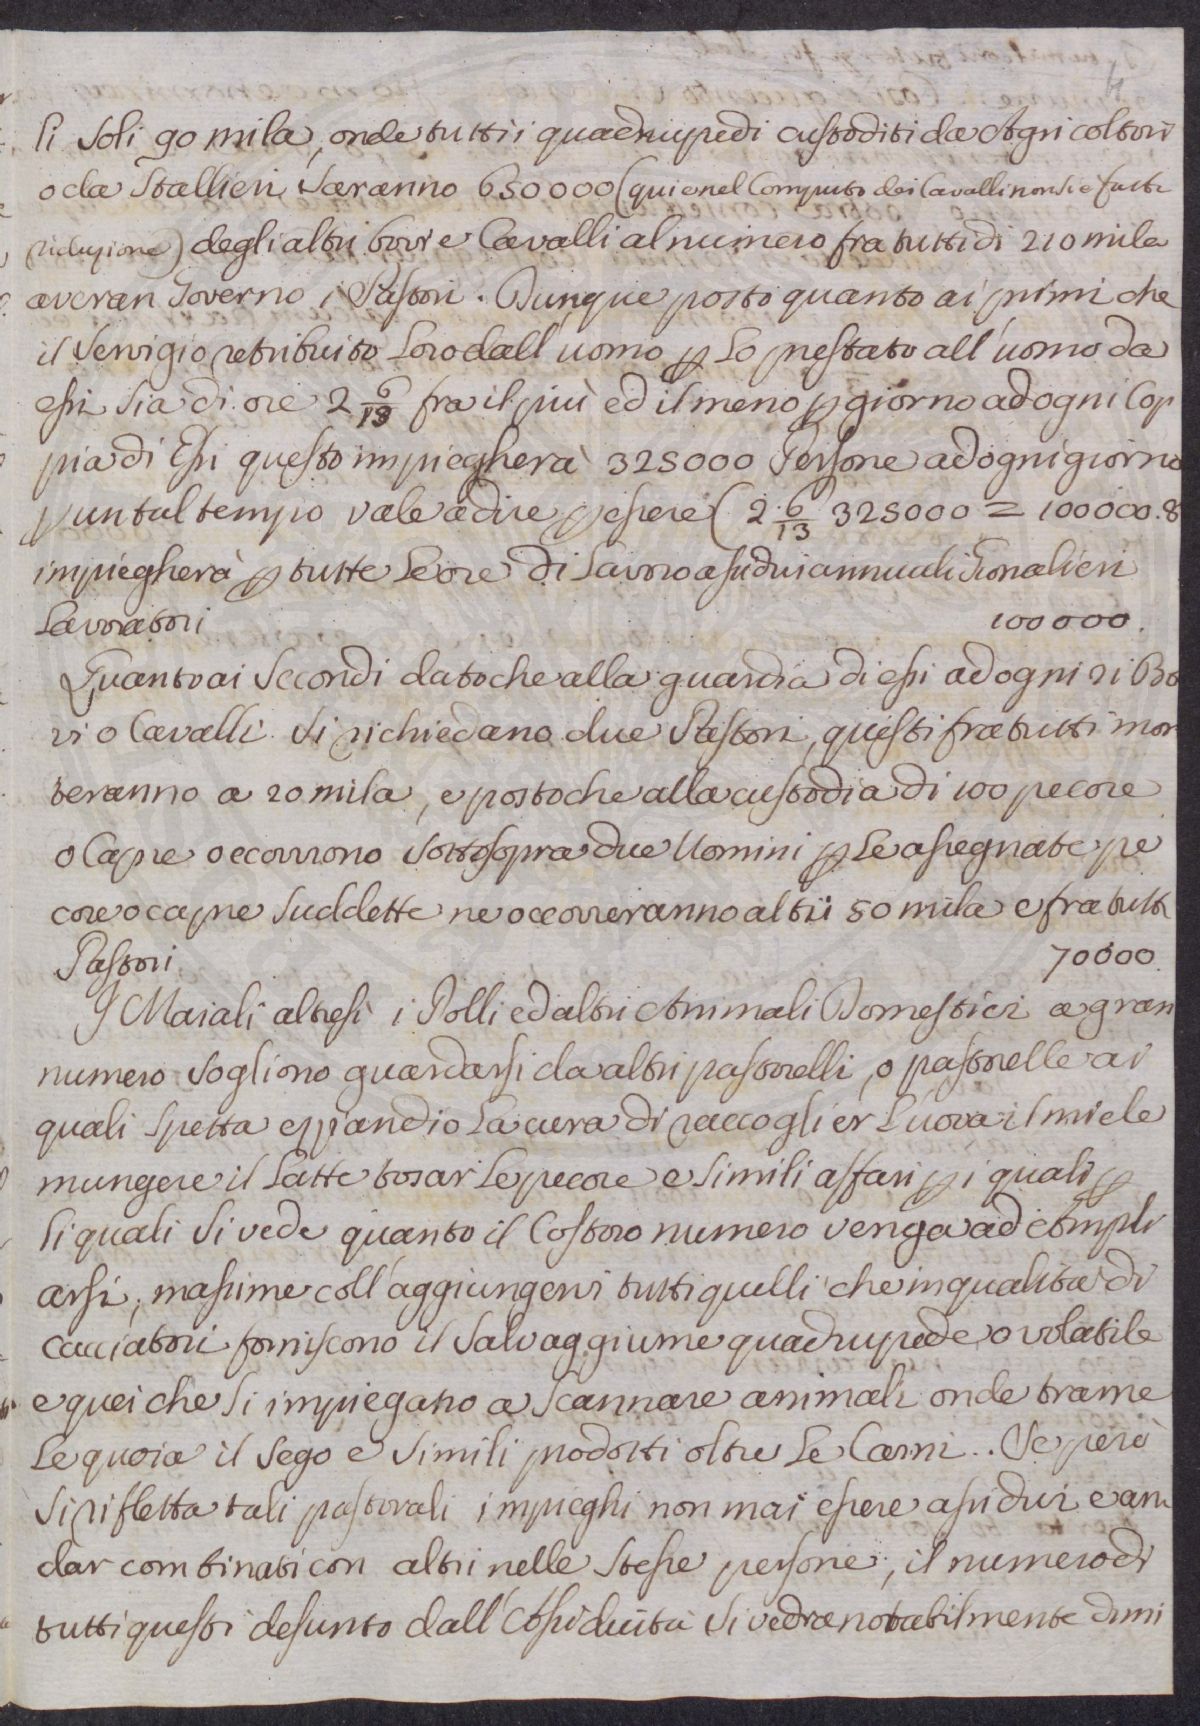 li soli 90 mila, onde tutti i quadrupedi custoditi da Agricoltori
o da Stallieri saranno 650000 (qui e nel Computo dei Cavalli non si è fatta
riduzione) degli altri bovi e Cavalli al numero fra tutti di 210 mila
averan Governo i Pastori. Dunque posto quanto ai primi che
il Servigio retribuito loro dall'uomo p lo prestato all'uomo da
essi sia di ore 2 6/13 fra il più ed il meno p giorno ad ogni Cop
pia di Essi questo impiegherà 325000 Persone ad ogni giorno
p un tal tempo vale a dire p essere (2 6/13 325000 = 100000.8
impiegherà p tutte le ore di lavoro assidui annuali Gionalieri
Lavoratori 100000.
Quanto ai Secondi dato che alla guardia di essi ad ogni 21 Bo
vi o Cavalli si richiedano due Pastori, questi fra tutti mon
teranno a 20 mila, e posto che alla custodia di 100 pecore
o Capre occorrono sottosopra due Uomini p le assegnate pe
core o capre suddette ne occorreranno altri 50 mila e fra tutti
Pastori 70000.
I Maiali altresì i Polli ed altri Animali Domestici a gran
numero sogliono guardarsi da altri pastorelli, o pastorelle ai
quali spetta eziandio la cura di raccoglier l'uova il miele
mungere il latte tosar le pecore e simili affari p i quali p
li quali si vede quanto il Costoro numero venga ad Ampli
arsi, massime coll'aggiungervi tutti quelli che in qualità di
cacciatori forniscono il salvaggiume quadrupede o volatile
e quei che si impiegano a scannare animali onde trarne
le quoia il sego e simili prodotti oltre le Carni.. Se però
si rifletta tali pastorali impieghi non mai essere assidui e an
dar combinati con altri nelle stesse persone, il numero di
tutti questi desunto dall'Assiduità si vedrà notabilmente dimi